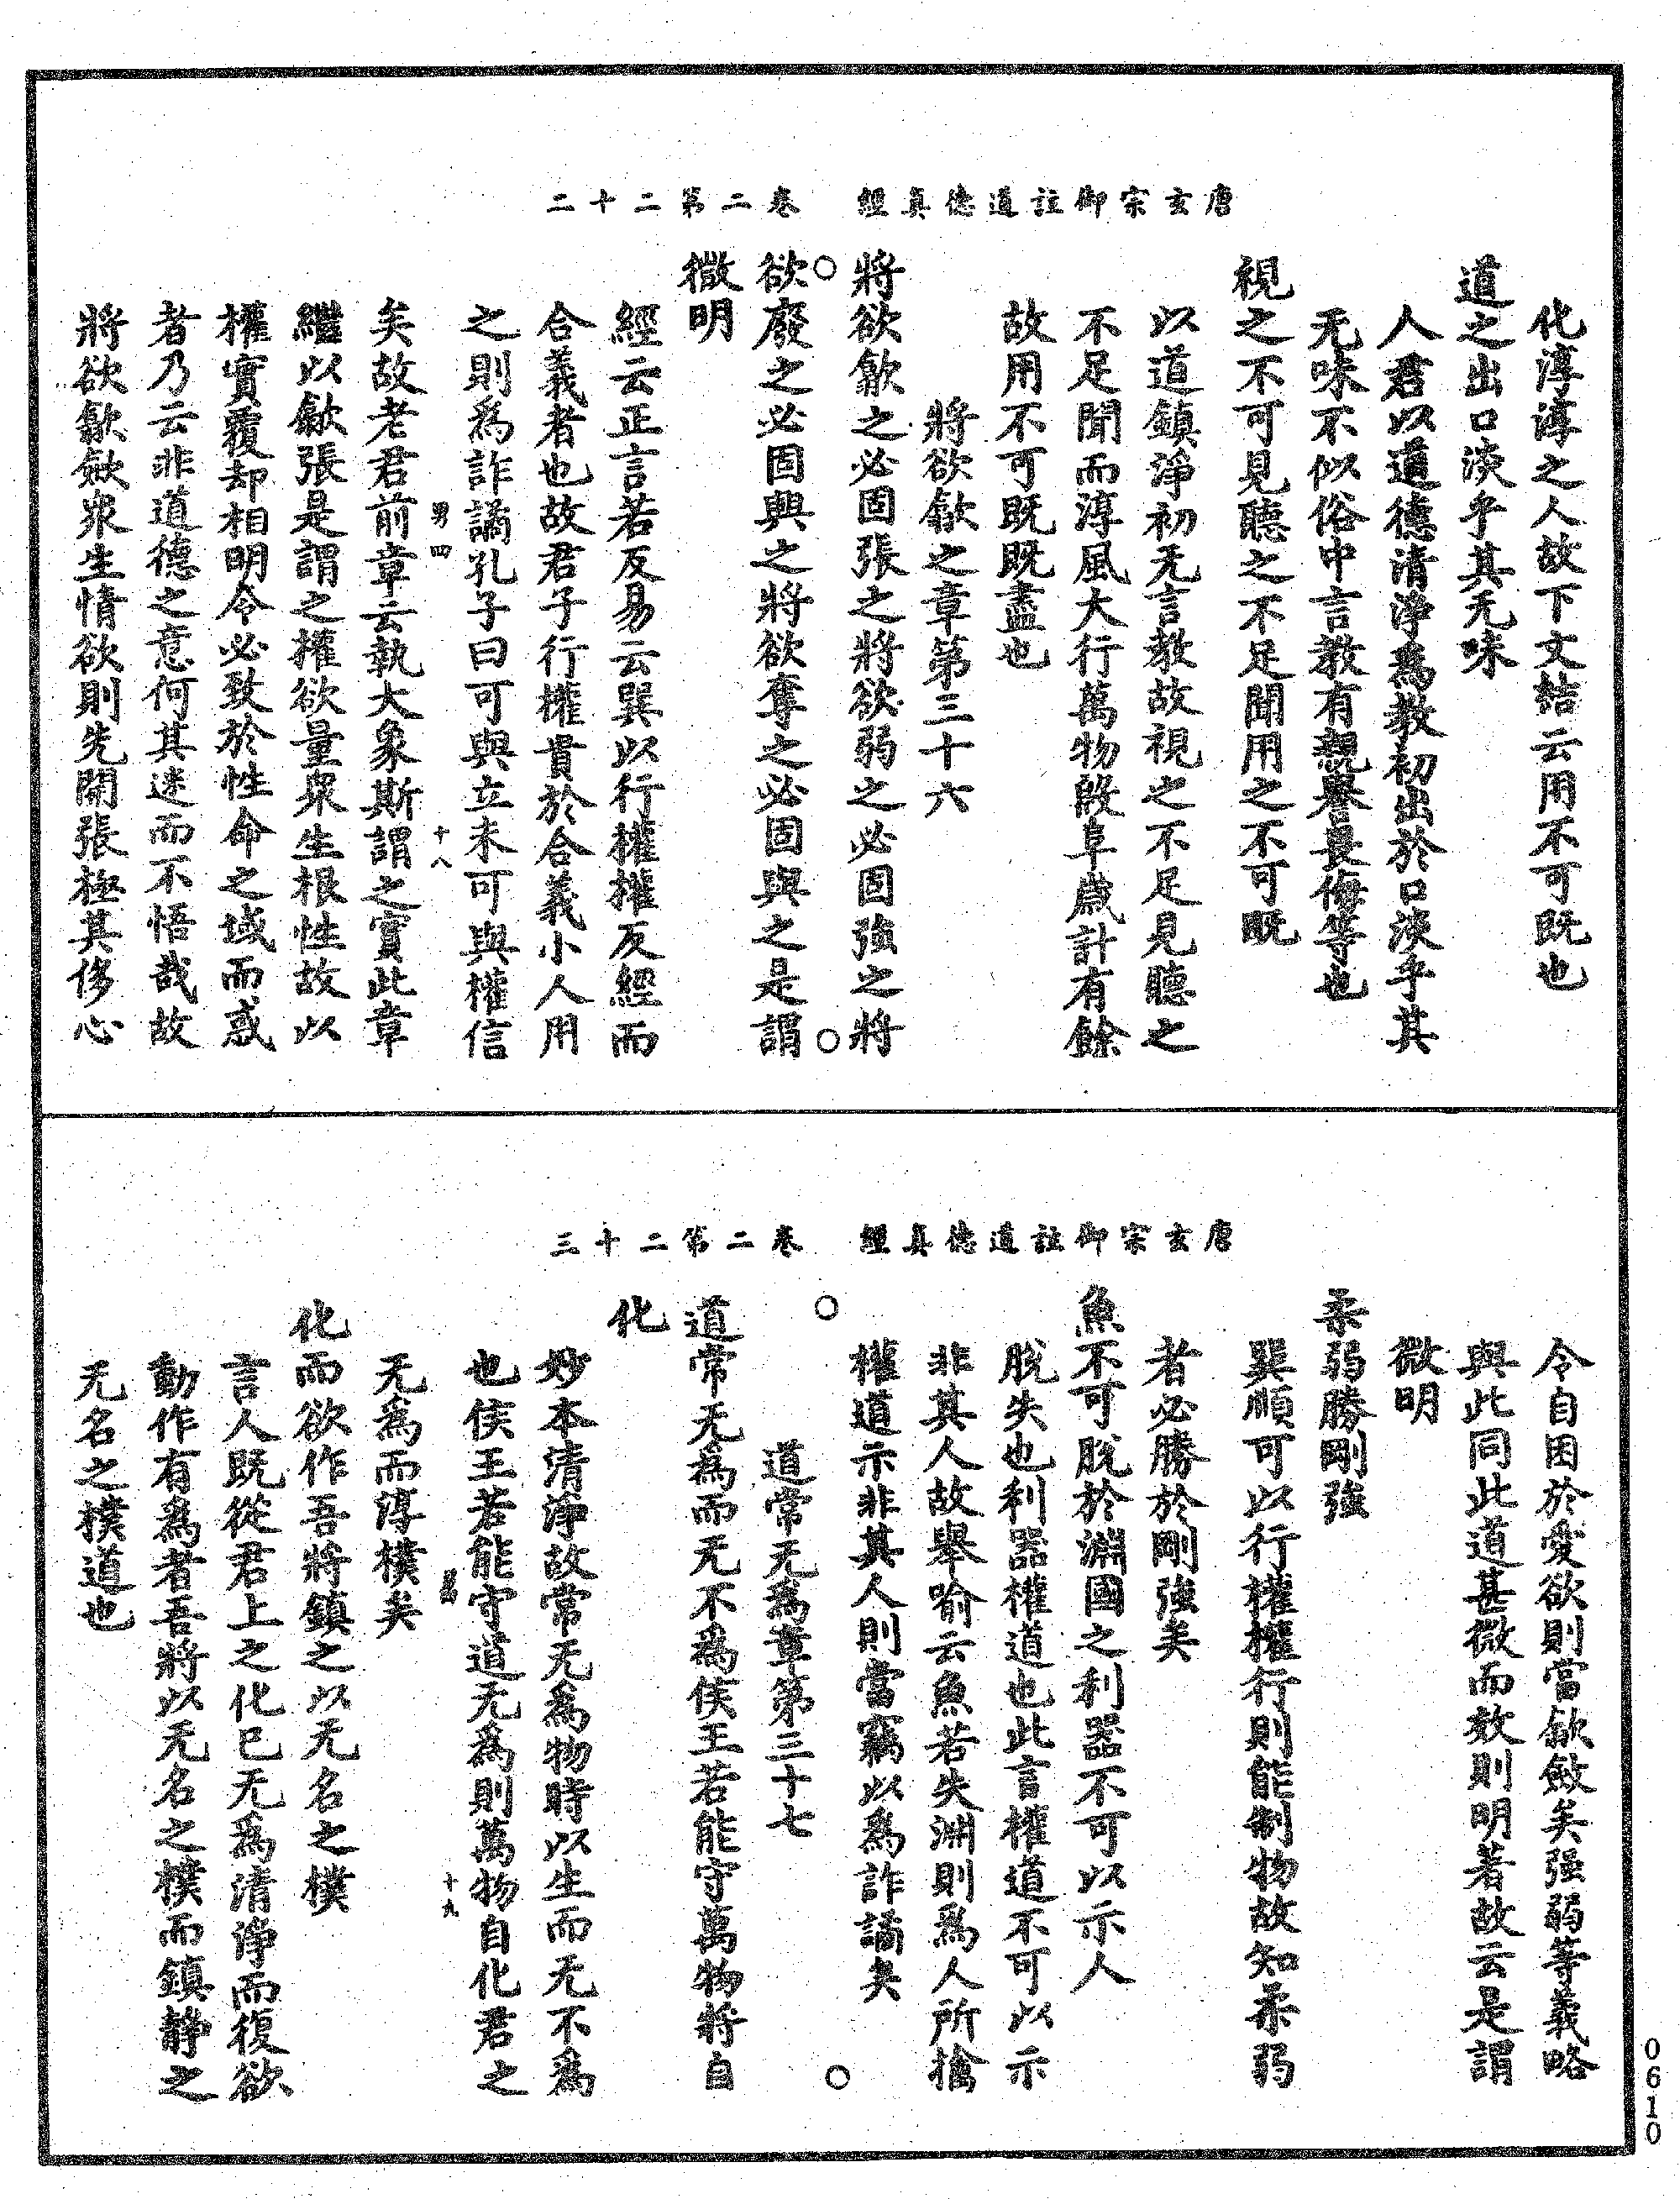 唐玄宗御註道德真經　卷二第二十二
化淳淳之人故下文結云用不可既也
道之出口淡乎其无味
人君以道德清淨爲教初出於口淡乎其
无味不似俗中言教有親譽畏侮等也
視之不可見聽之不足聞用之不可既
以道鎮淨初无言教故視之不足見聽之
不足聞而淳風大行萬物殷阜歲計有餘
故用不可既既盡也
將欲歙之章第三十六
將欲歙之必固張之將欲弱之必固強之將
○欲廢之必固興之將欲奪之必固與之是謂○
微明
經云正言若反易云巽以行權權反經而
合義者也故君子行權貴於合義小人用
之則爲詐譎孔子曰可與立未可與權信
男四　十八
矣故老君前章云執大象斯謂之實此章
繼以歙張是謂之權欲量衆生根性故以
權實覆却相明令必致於性命之域而惑
者乃云非道德之意何其迷而不悟哉故
將欲歙斂衆生情欲則先開張極其侈心
唐玄宗御註道德真經　卷二第二十三
令自困於愛欲則當歙斂矣强弱等義略
與此同此道甚微而效則明著故云是謂
微明
柔弱勝剛強
巽順可以行權權行則能制物故知柔弱
者必勝於剛強矣
魚不可脫於淵國之利器不可以示人
脫失也利器權道也此言權道不可以示
非其人故舉喻云魚若失淵則爲人所擒
權道示非其人則當竊以爲詐譎矣
○　○
道常无爲章第三十七
道常无爲而无不爲侯王若能守萬物將自
化
妙本清淨故常无爲物時以生而无不爲
也侯王若能守道无爲則萬物自化君之
十九
无爲而淳樸矣
化而欲作吾將鎮之以无名之樸
言人既從君上之化已无爲清淨而復欲
動作有爲者吾將以无名之樸而鎮靜之
无名之樸道也
0610